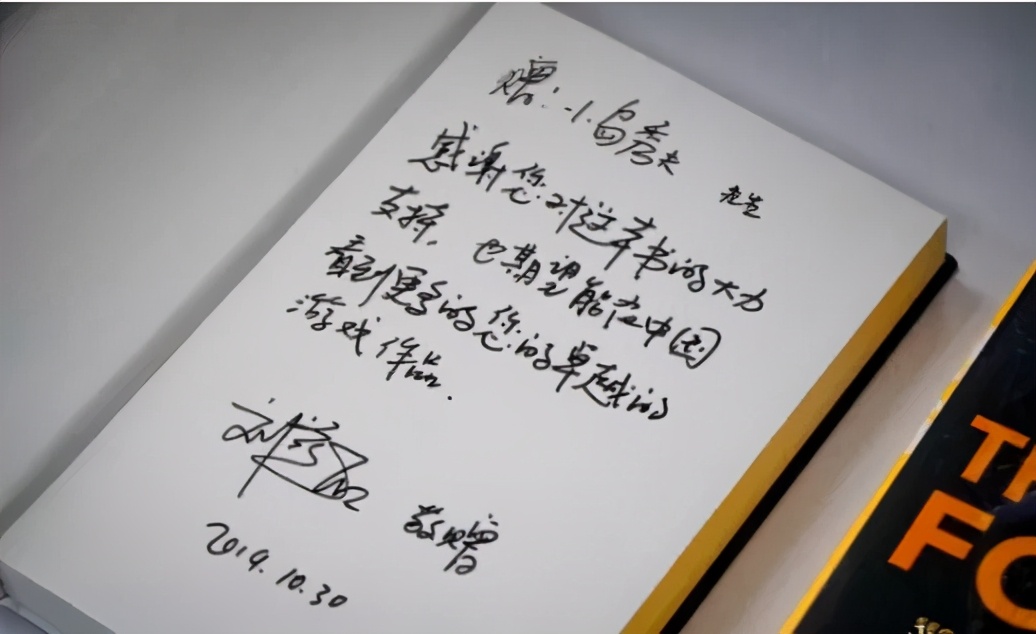 赠:小岛秀夫 先生
感谢您对这本书的大力
支持,也期望能在中国
看到更多的您的卓越的
游戏作品.
敬赠
2019.10.30
TH
FO